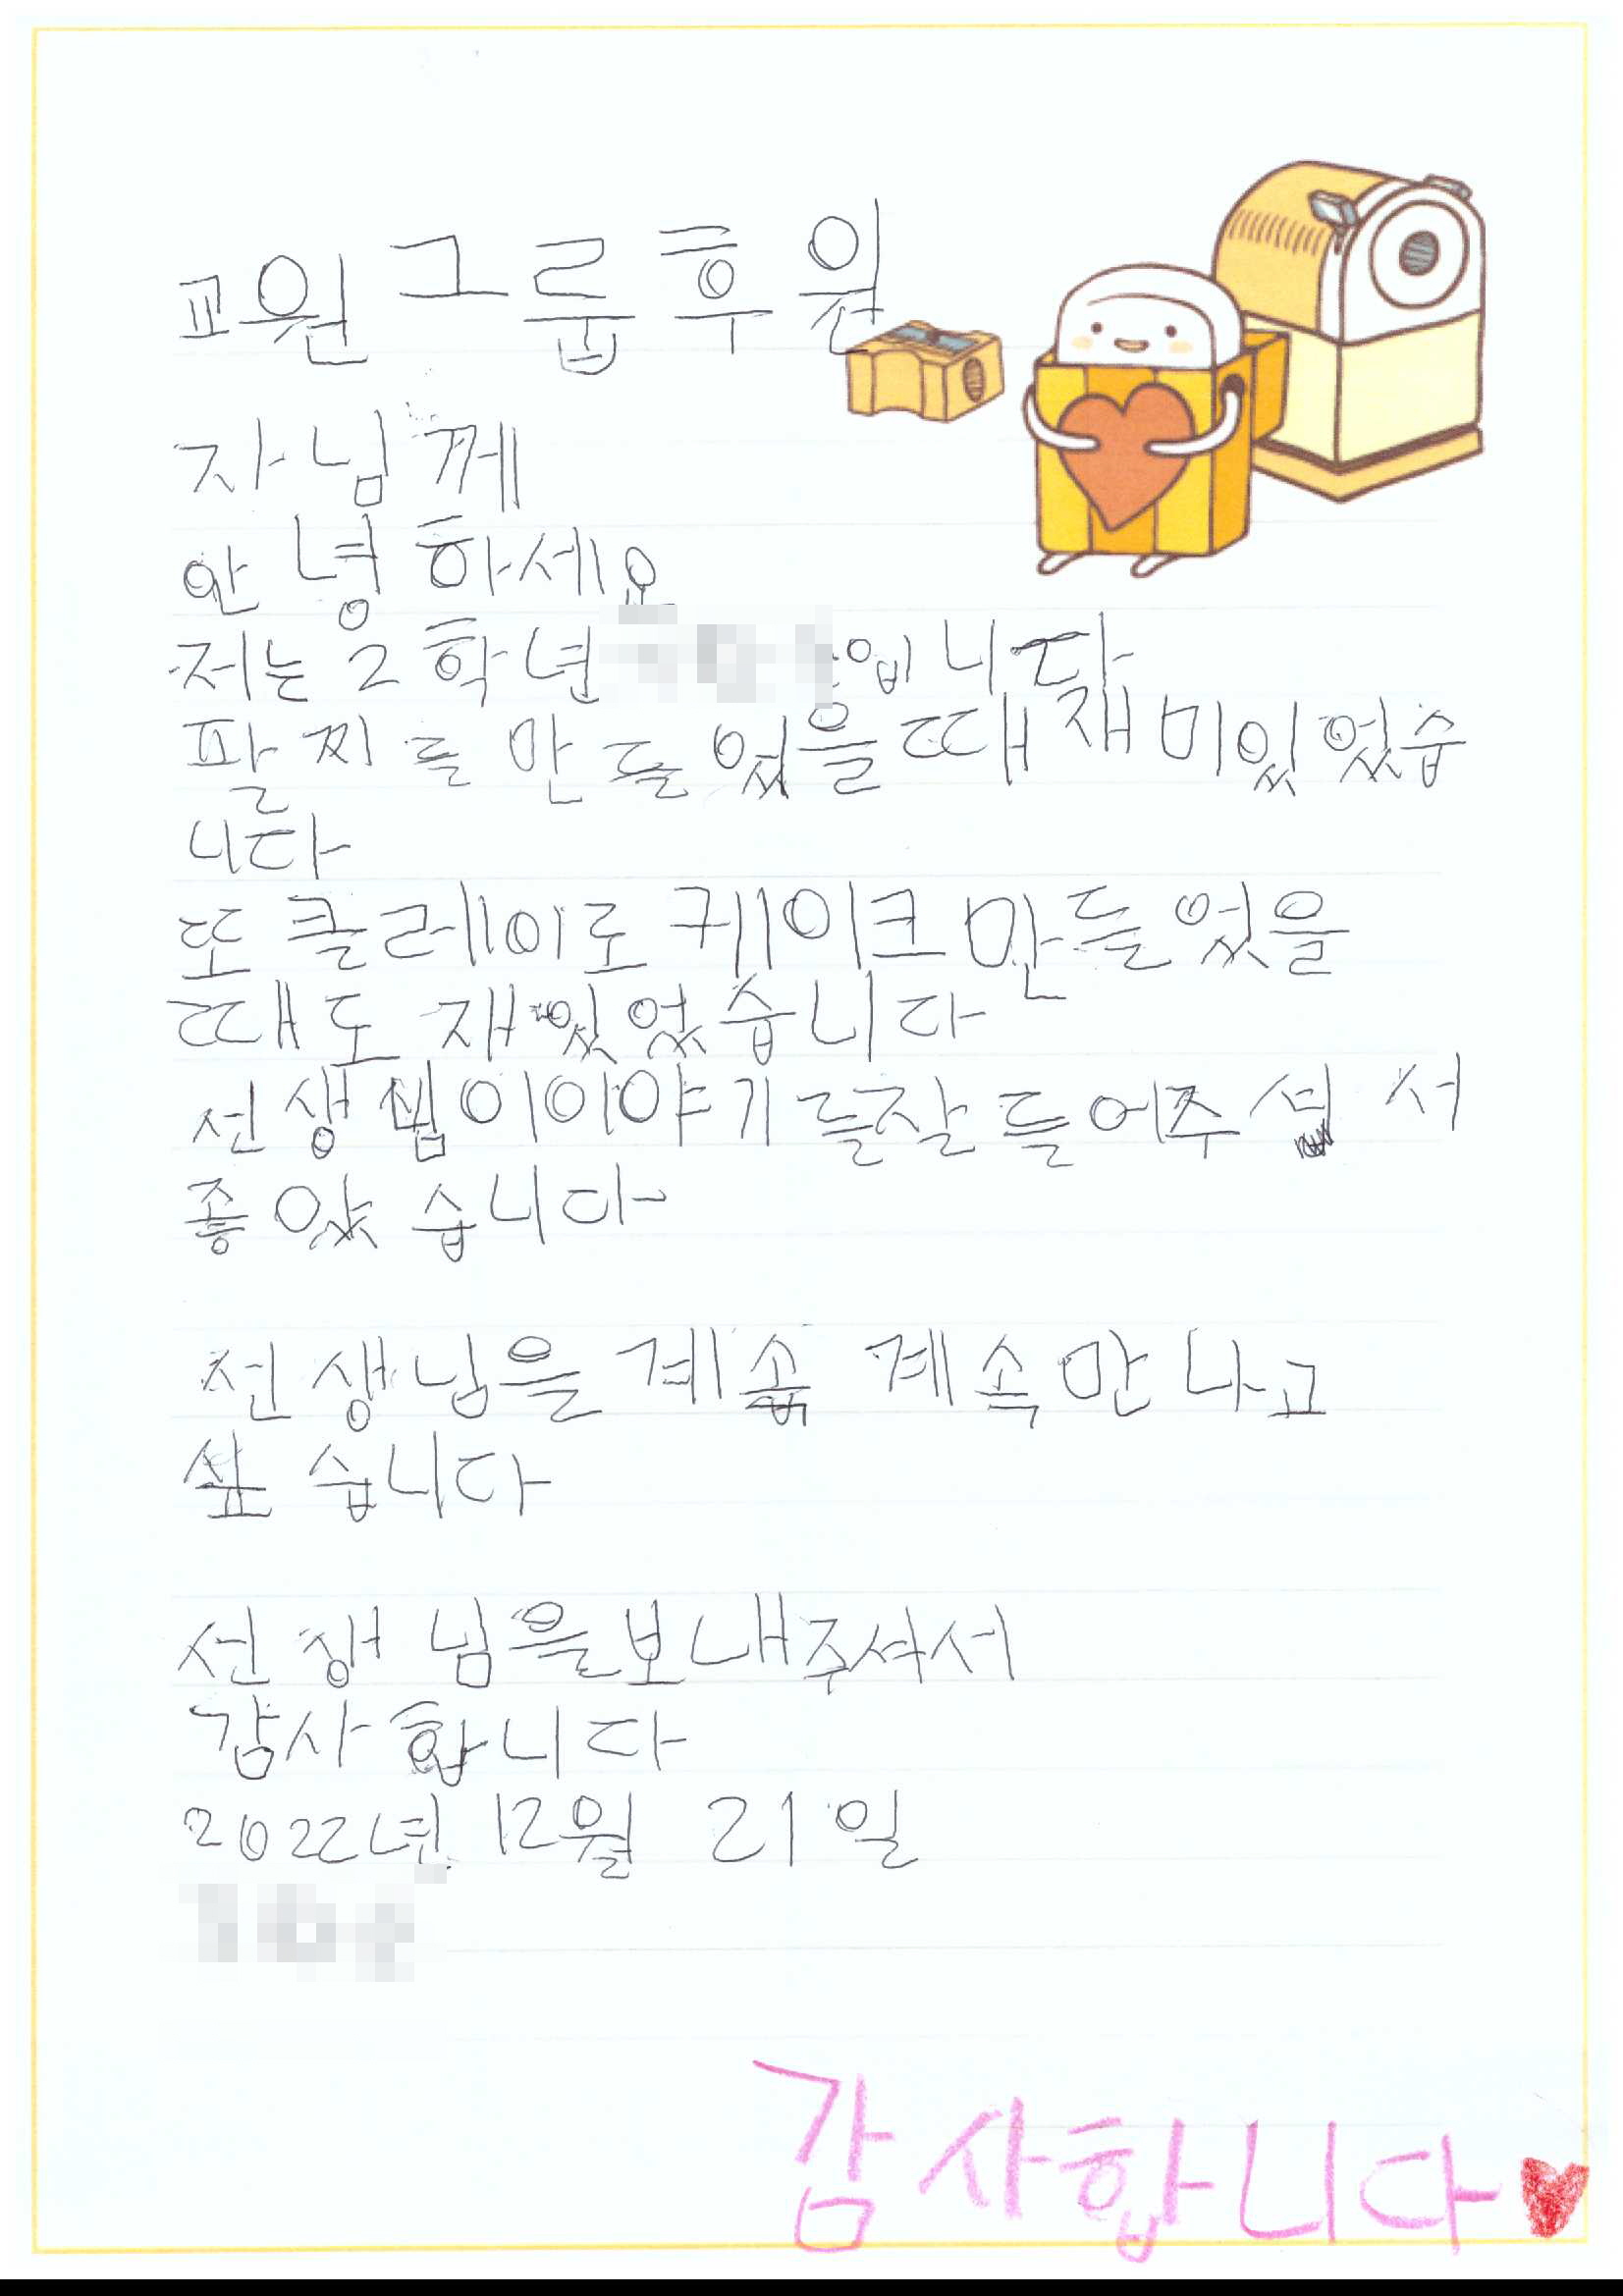 교원그룹후원
자님께
안녕하세요
저는 2학년 입니다
팔찌를 만들었을때 재미있었습
니다
또 클레이로 케이크 만들었을
때도 재밌었습니다
선생님이 이야기를 잘 들어주셔서
좋았습니다
선생님을 계속 계속 만나고
싶습니다
선생님을 보내주셔서
감사합니다
2022년 12월 21일
감사합니다♥